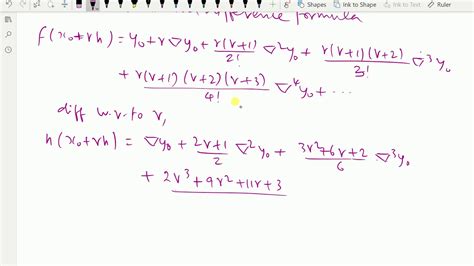 Ink to Shape Ink to Text
difference formula
f(x₀+rh) = y₀ + r ∇y₀ + r(r+1)/2! ∇²y₀ + r(r+1)(r+2)/3! ∇³y₀
+ r(r+1)(r+2)(r+3)/4! ∇⁴y₀ + ...
diff w.r. to r,
h(x₀+rh) = ∇y₀ + 2r+1/2 ∇²y₀ + 3r²+6r+2/6 ∇³y₀
+ 2r³+9r²+11r+3